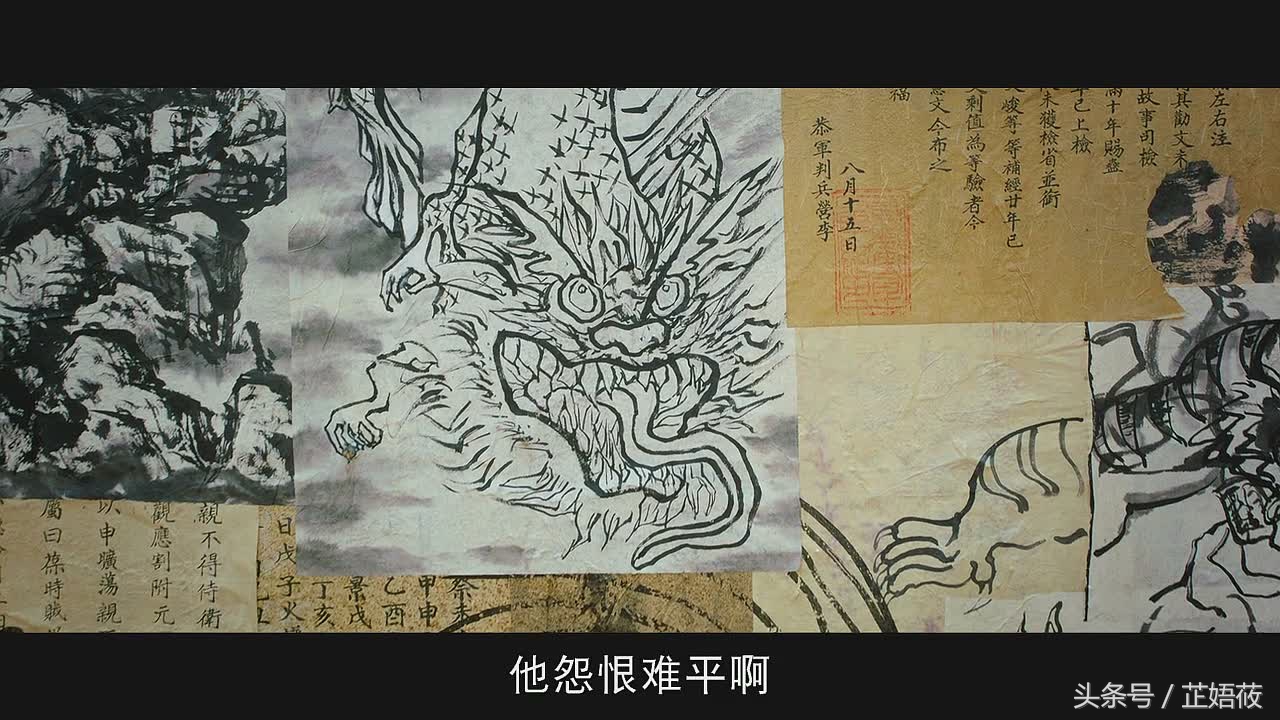 左右注
其勸文未
故事司檢
滿十年賜盤
年己上檢
未獲檢省並銜
峻等等補經廿年已
剩值為等驗者今
文今布之
福
八月十五日
恭軍判兵營李
親不得侍衛
觀應割附元
以申曠蕩親
屬曰葆時賊
祭未
甲申
乙酉
景戌
丁亥
子火
日戊
他怨恨难平啊
头条号 / 芷娪莜